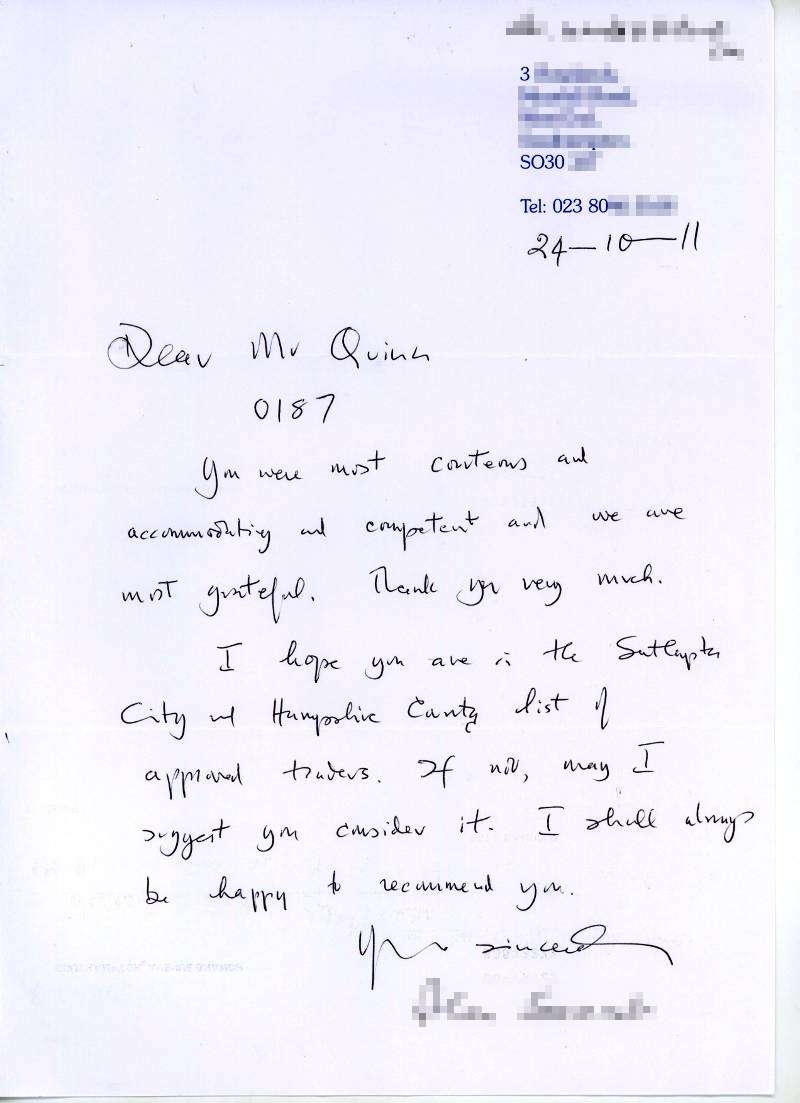 3
SO30
Tel: 023 80
24-10-11
Dear Mr Quinn
0187
You were most courteous and
accommodating and competent and we are
most grateful. Thank you very much.
I hope you are in the Southampton
City and Hampshire County list of
approved traders. If not, may I
suggest you consider it. I shall always
be happy to recommend you.
Yours sincerely